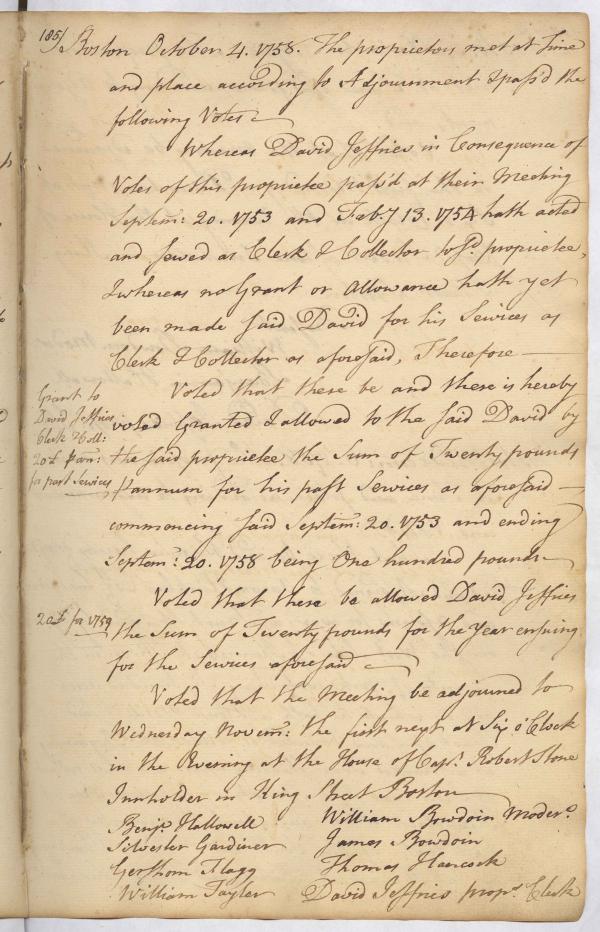 185/ Boston October 4. 1758. The proprietors met at time
and place according to Adjournment & pass'd the
following Votes
Whereas David Jeffries in Consequence of
Votes of this proprietee pass'd at their Meeting
Septemr: 20. 1753 and Feby 13. 1754 hath acted
and served as Clerk & Collector to sd. proprietee,
& whereas no Grant or Allowance hath yet
been made said David for his Services as
Clerk & Collector as aforesaid, Therefore
Voted that there be and there is hereby
voted Granted & allowed to the said David by
the said proprietee the Sum of Twenty pounds
₱ annum for his past Services as aforesaid
commencing said Septemr: 20. 1753 and ending
Septemr: 20. 1758 being One hundred pounds
Grant to
David Jeffries
Clerk & Coll:
20£ ₱ an:
for past Services
Voted that there be allowed David Jeffries
the Sum of Twenty pounds for the Year ensuing
for the Services aforesaid
20£ for 1759
Voted that the Meeting be adjourned to
Wednesday Novemr: the first next at Six o'Clock
in the Evening at the House of Capt. Robert Stone
Innholder in King Street Boston
Benja. Hallowell
Silvester Gardiner
Gershom Flagg
William Tayler
William Bowdoin Moder.
James Bowdoin
Thomas Hancock
David Jeffries props. Clerk